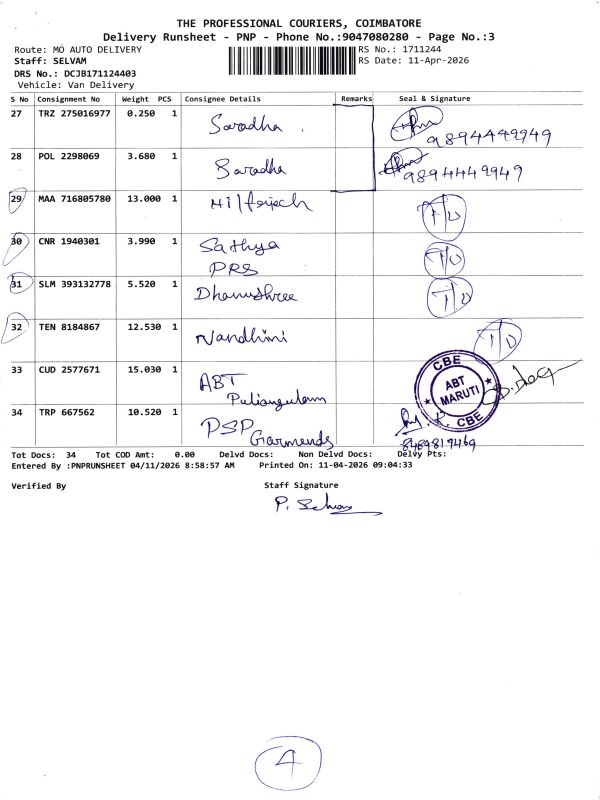 THE PROFESSIONAL COURIERS, COIMBATORE
Delivery Runsheet - PNP - Phone No.:9047080280 - Page No.:3
Route: MO AUTO DELIVERY RS No.: 1711244
Staff: SELVAM RS Date: 11-Apr-2026
DRS No.: DCJB171124403
Vehicle: Van Delivery
S No Consignment No Weight PCS Consignee Details Remarks Seal & Signature
27 TRZ 275016977 0.250 1 Saradha 9894449949
28 POL 2298069 3.680 1 Saradha 9894449949
29 MAA 716805780 13.000 1 T/D
30 CNR 1940301 3.990 1 Sathya T/D
PRS
31 SLM 393132778 5.520 1 Dhanushree T/D
32 TEN 8184867 12.530 1 Nandhini T/D
33 CUD 2577671 15.030 1 ABT CBE ABT MARUTI CBE
Puliangulam
34 TRP 667562 10.520 1 PSP
Garments 8489819469
Tot Docs: 34 Tot COD Amt: 0.00 Delvd Docs: Non Delvd Docs: Delvy Pts:
Entered By :PNPRUNSHEET 04/11/2026 8:58:57 AM Printed On: 11-04-2026 09:04:33
Verified By Staff Signature
P. Selvam
4